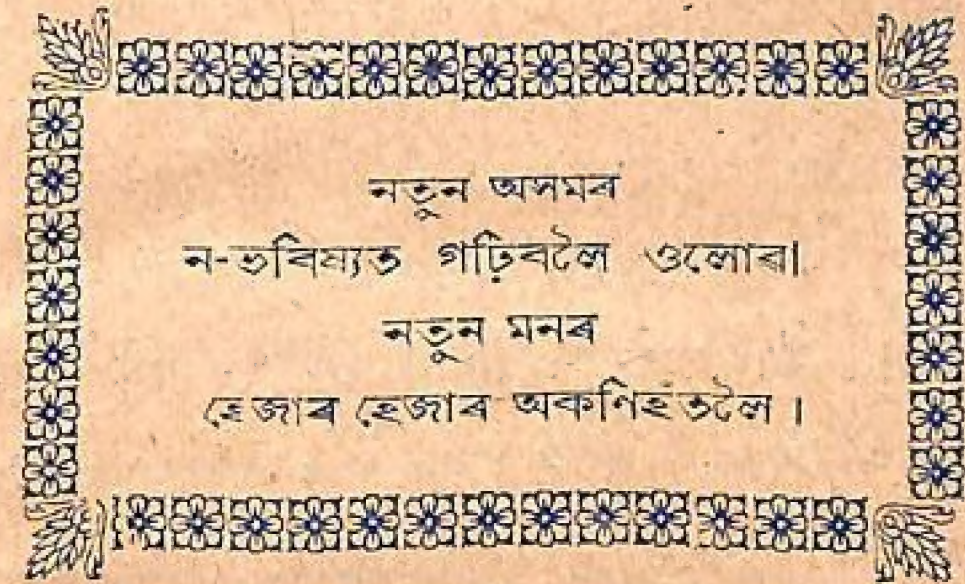 নতুন অসমৰ
ন-ভবিষ্যত গঢ়িবলৈ ওলোৱা
নতুন মনৰ
হেজাৰ হেজাৰ অকণিহঁতলৈ ।